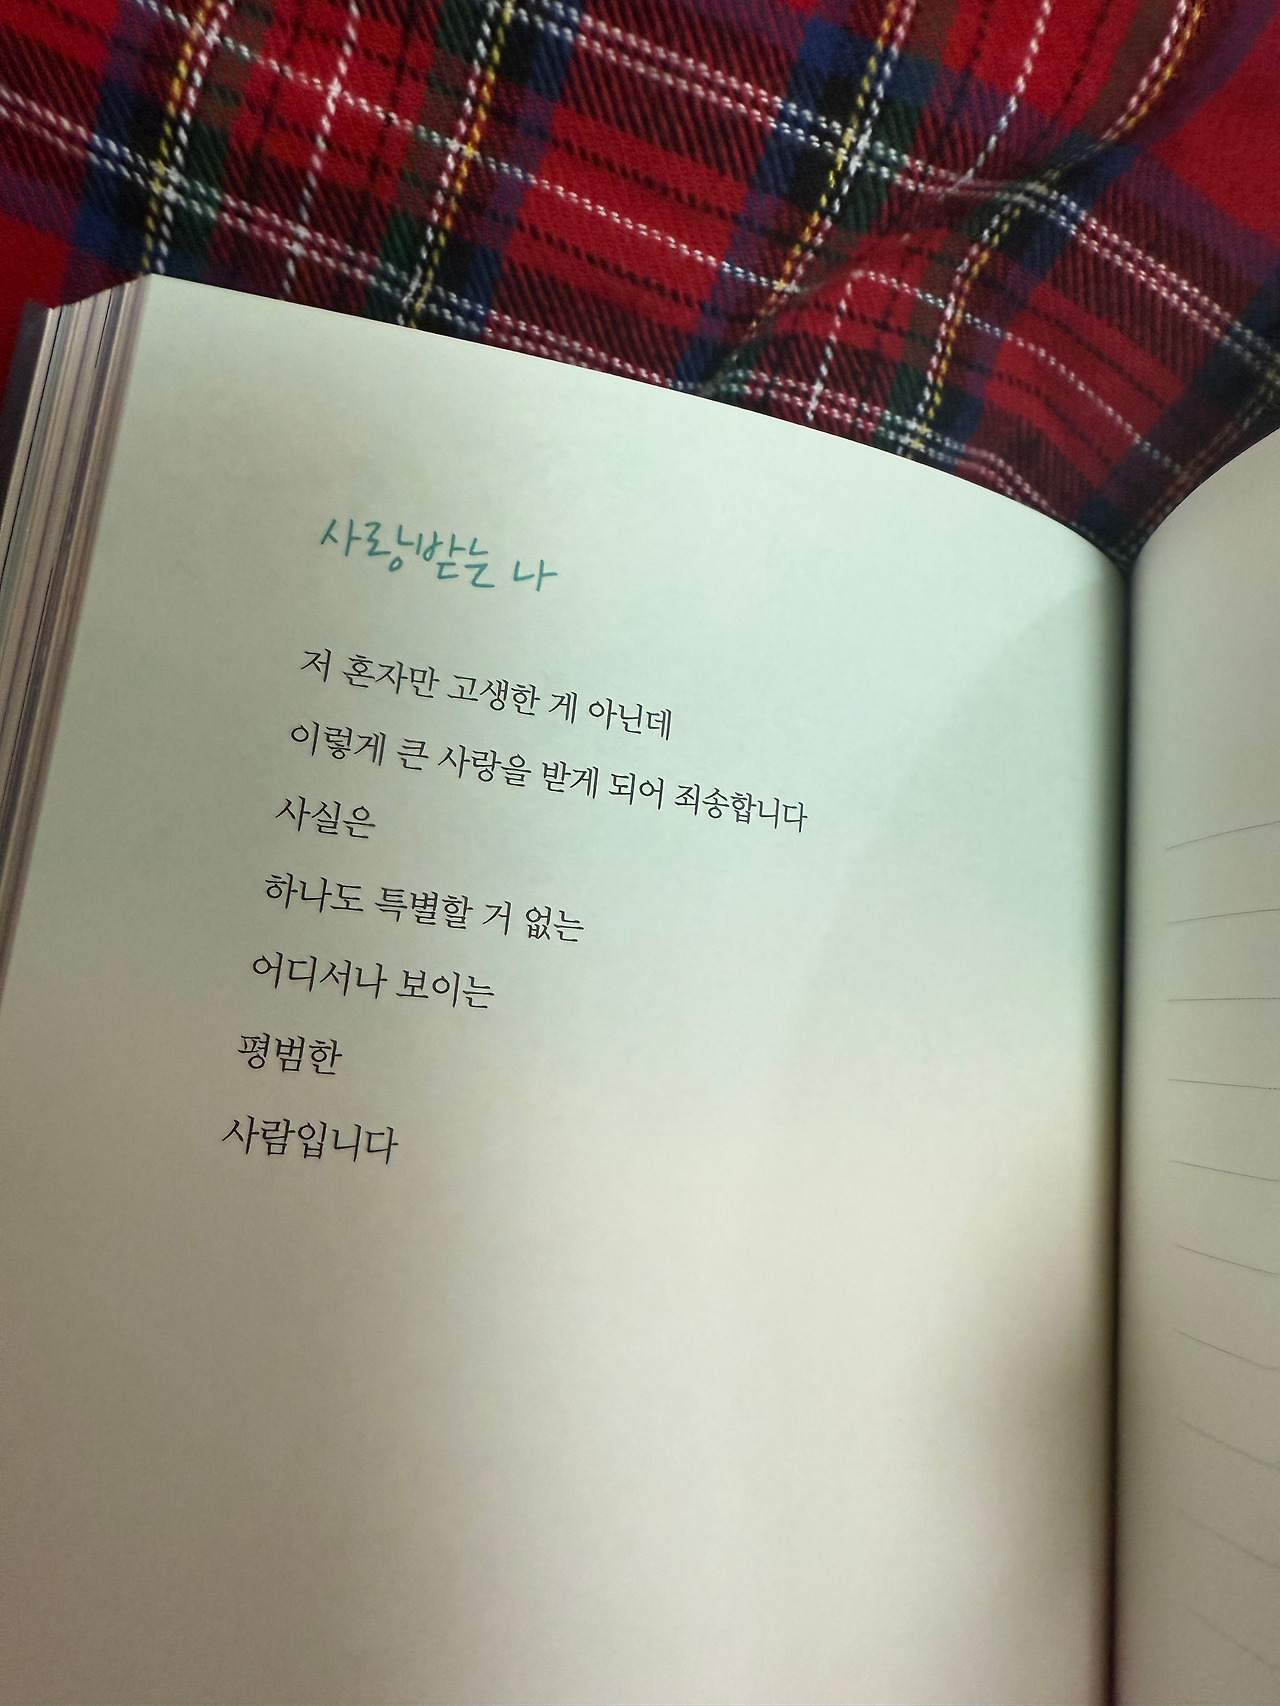 사랑받는 나
저 혼자만 고생한 게 아닌데
이렇게 큰 사랑을 받게 되어 죄송합니다
사실은
하나도 특별할 거 없는
어디서나 보이는
평범한
사람입니다